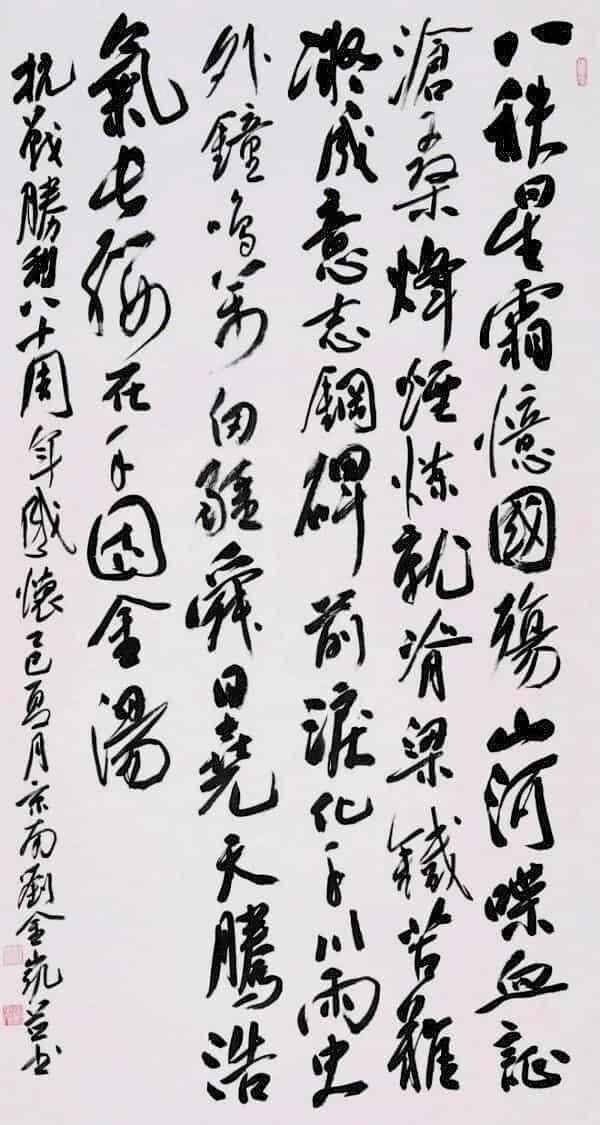 八秩星霜憶國殤山河喋血證
滄桑烽煙煉就脊梁鐵苦難
凝成意志鋼碑前淚化千川雨史
外鐘鳴萬疆舜日堯天騰浩
氣長纓在手固金湯
抗戰勝利八十周年感懷乙巳夏月京南劉金凱並書